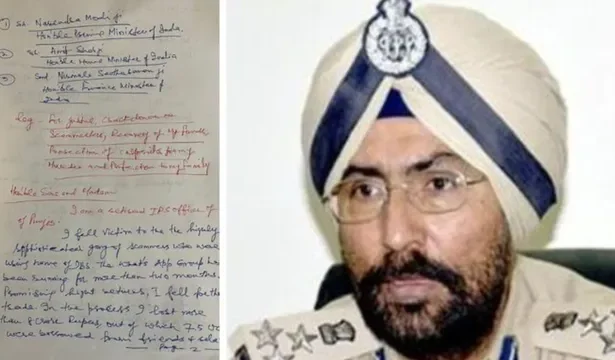 ① Sr. Narendra Modi ji
Hon'ble Prime Minister of India.
② Sr. Amit Shah ji
Hon'ble Home Minister of India
③ Smt Nirmala Seetharaman ji
Hon'ble Finance Minister of
India
Reg - For justice, Crackdown on
Scamsters, Recovery of my funds,
Protection of
and Protection to my family
Hon'ble Sirs and Madam
I am a retired IPS officer of
of Punjab.
I fell victim to the the highly
sophisticated gang of scammers who were
using name of DBS. The WhatsApp Group has
been running for more than two months.
Promising hight returns, I fell for the
trade. In the process I lost more
than 8 crore Rupees out of which 7.5 Cr
were borrowed from friends & rela
Page 2